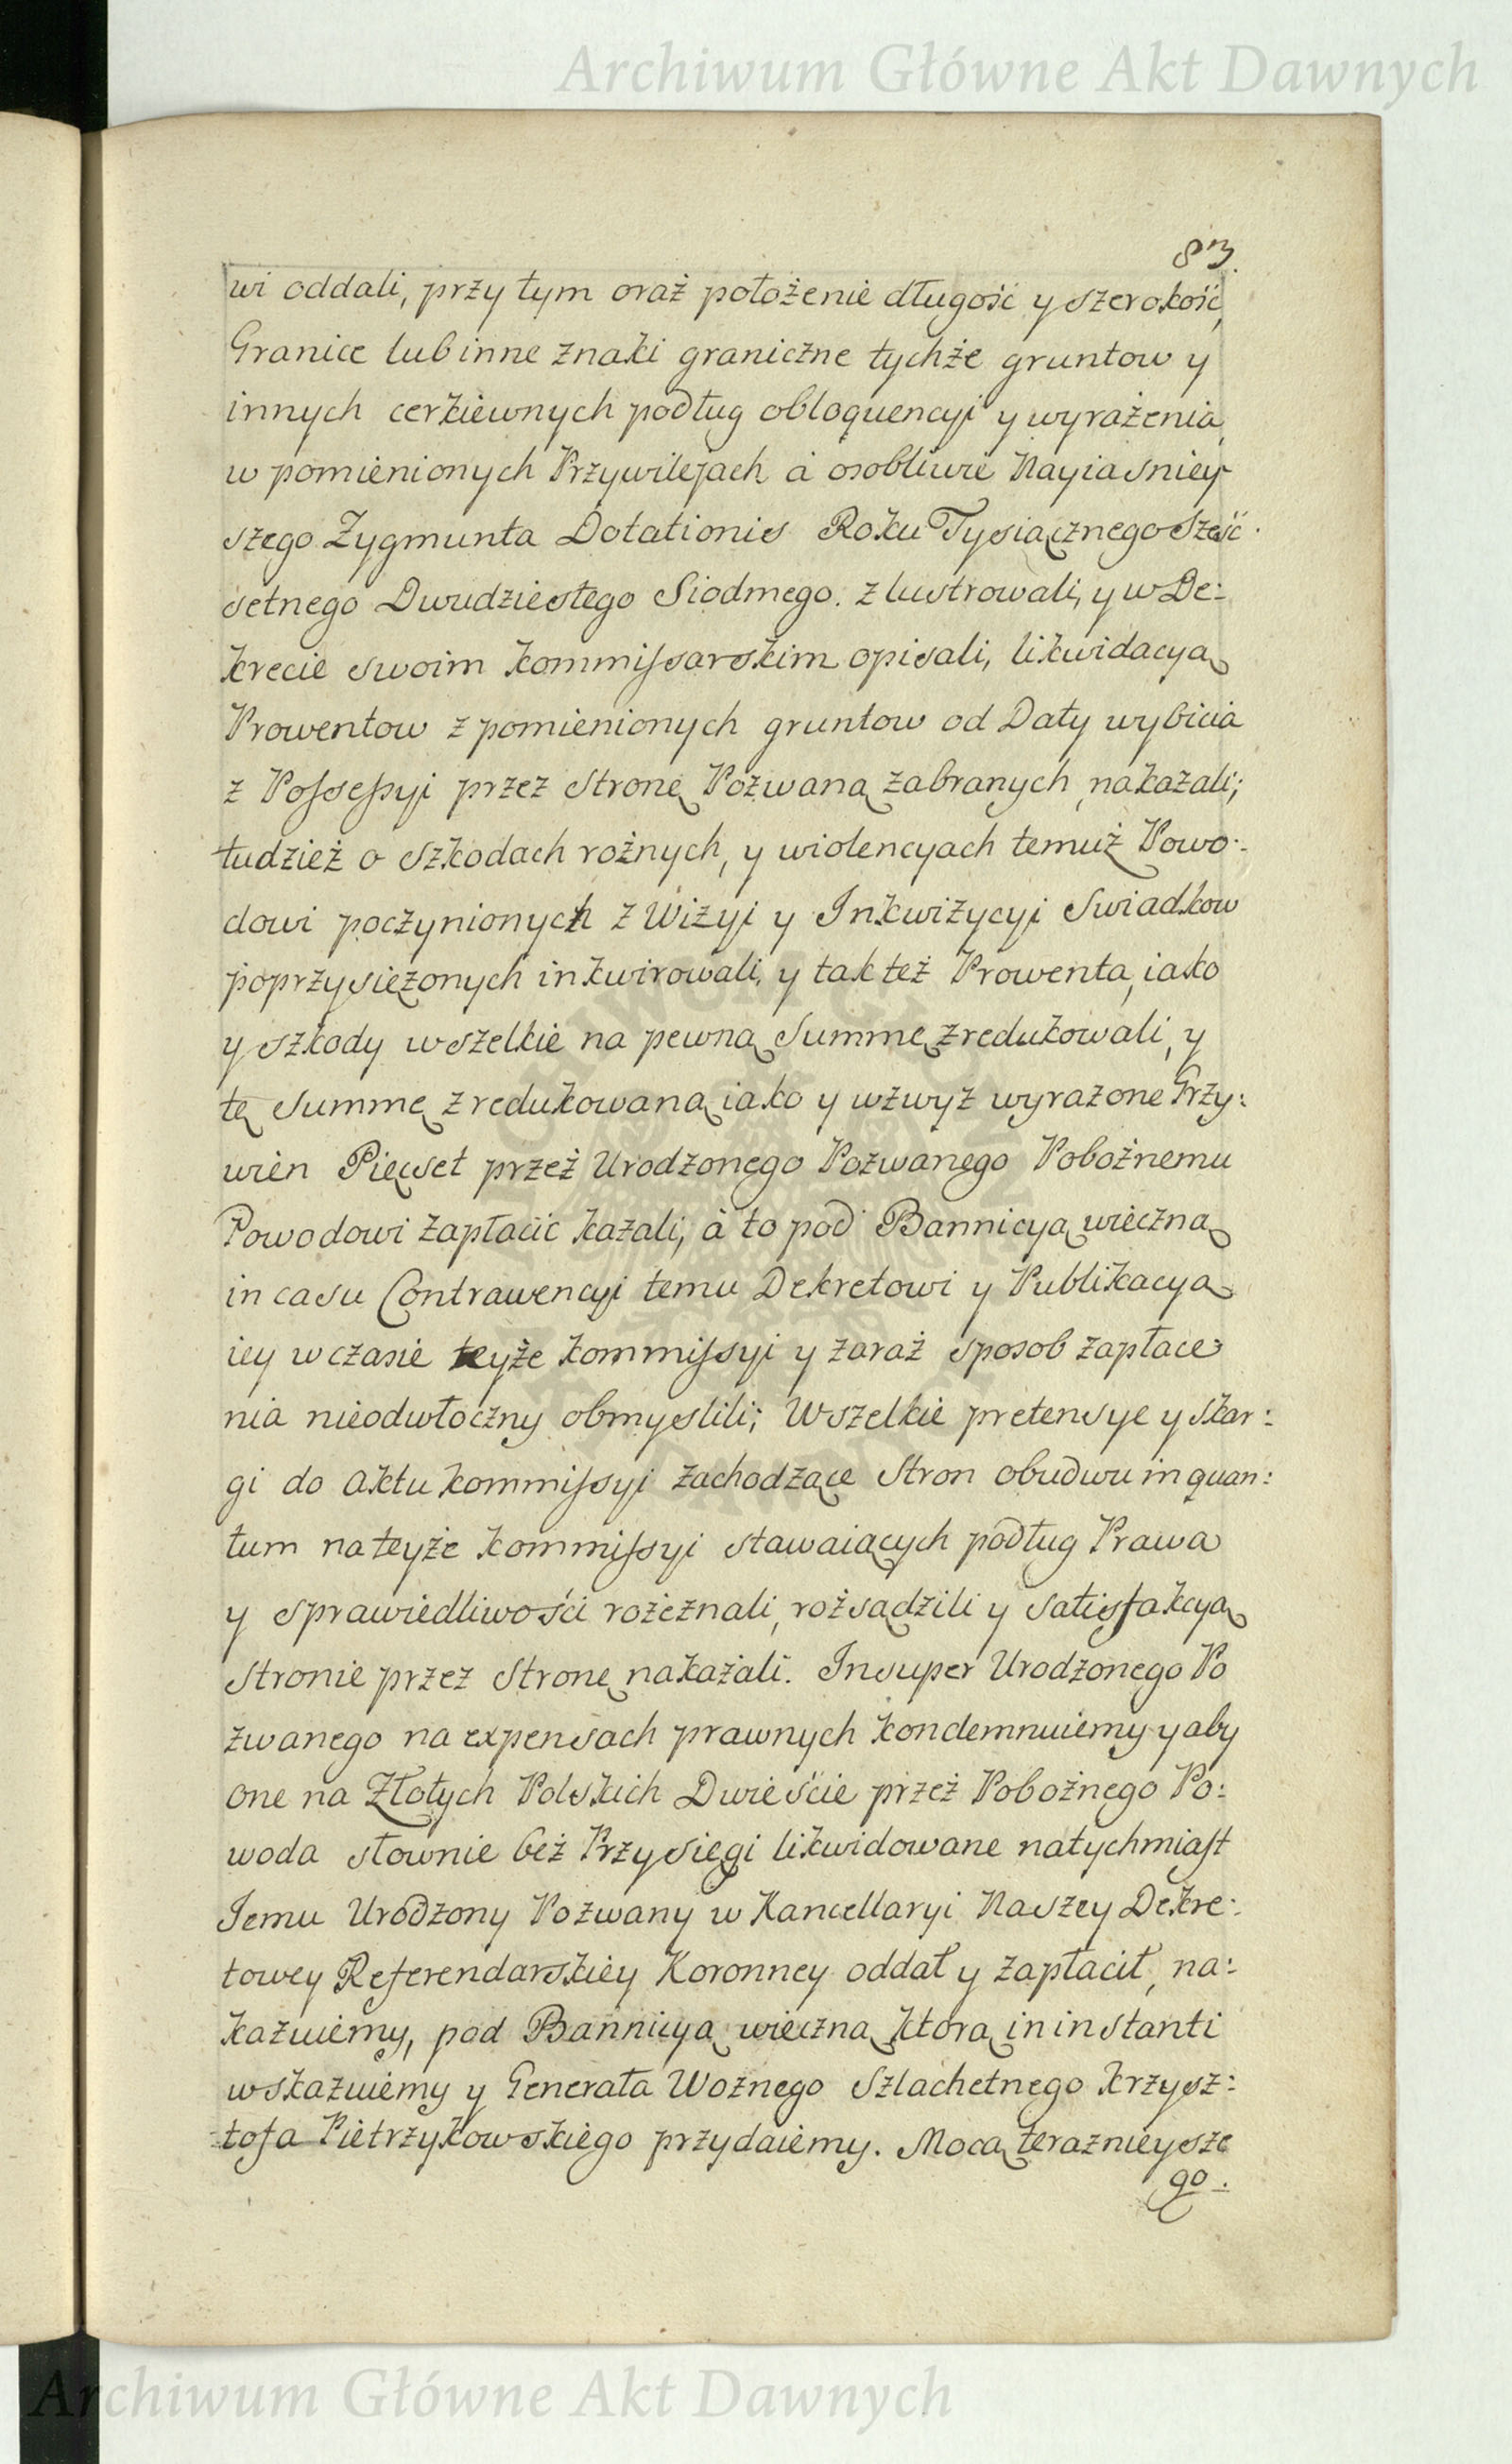 Archiwum Główne Akt Dawnych
83.
wi oddali, przy tym oraż położenie długość y szerokość,
Granice lub inne znaki graniczne tychże gruntow y
innych cerkiewnych podług obloquencyi y wyrażenia
w pomienionych Przywilejach à osobliwie Nayiasniey
szego Zygmunta Dotationis Roku Tysiącznego Sześć
setnego Dwudziestego Siodmego. zlustrowali, y w De:
krecie swoim kommissarskim opisali, likwidacyą
Prowentow z pomienionych gruntow od Daty wybicia
z Possessyi przez Stronę Pozwaną zabranych nakazali;
tudzież o szkodach rożnych, y wiolencyach temuż Powo:
dowi poczynionych z Wizyi y Inkwizycyi Swiadkow
poprzysiężonych inkwirowali, y tak też Prowenta, iako
y szkody wszelkie na pewną Summę zredukowali, y
tę Summę zredukowaną iako y wzwyż wyrażone Grzy:
wien Pięcset przeż Urodzonego Pozwanego Pobożnemu
Powodowi zapłacić kazali, à to pod Bannicyą wieczną
in casu Contrawencyi temu Dekretowi y Publikacyą
iey w czasie teyże kommissyi y zaraż sposob zapłace
nia nieodwłoczny obmyslili; Wszelkie pretensye y skar:
gi do Aktu kommissyi zachodzące Stron obudwu in quan:
tum na teyże kommissyi stawaiących podług Prawa
y sprawiedliwości rozeznali, rozsądzili y satisfakcyą
Stronie przez Stronę nakażali. Insuper Urodzonego Po
zwanego na expensach prawnych kondemnuiemy y aby
one na Złotych Polskich Dwieście przeż Pobożnego Po:
woda słownie beż Przysięgi likwidowane natychmiast
Jemu Urodzony Pozwany w Kancellaryi Naszey Dekre:
towey Referendarskiey Koronney oddał y zapłacił, na:
kazuiemy, pod Bannicyą wieczną ktorą in instanti
wskazuiemy y Generała Woznego Szlachetnego Krzysz:
tofa Pietrzykowskiego przydaiemy. Mocą teraznieysze
go.
Archiwum Główne Akt Dawnych